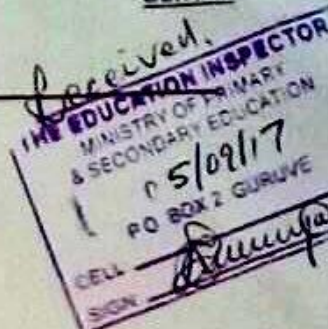 Received.
THE EDUCATION INSPECTOR
MINISTRY OF PRIMARY
& SECONDARY EDUCATION
05/09/17
PO BOX 2 GURUVE
CELL
SIGN